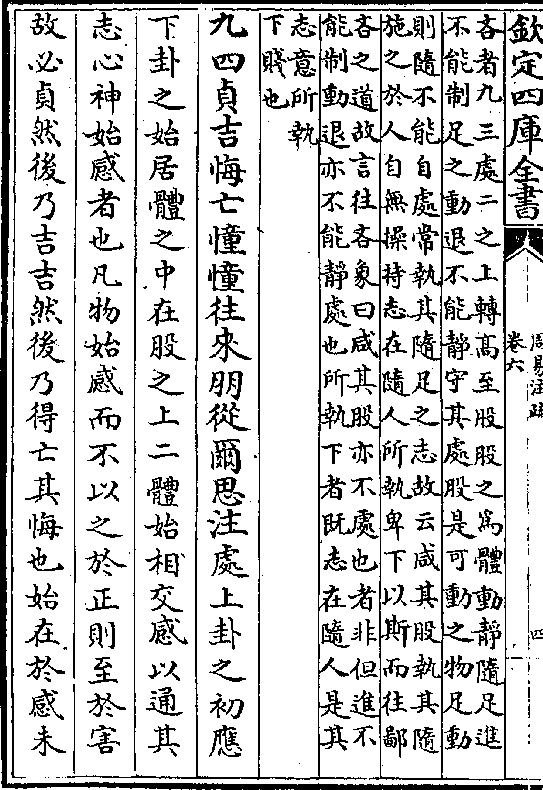 欽定四庫全書
周易注疏
卷六
四
吝者九三處二之上轉髙至股股之為體動靜隨足進
不能制足之動退不能靜守其處股是可動之物足動
則隨不能自處常執其隨足之志故云咸其股執其隨
施之於人自無操持志在隨人所執卑下以斯而往鄙
吝之道故言往吝象曰咸其股亦不處也者非但進不
能制動退亦不能靜處也所執下者既志在隨人是其
志意所執
下賤也
九四貞吉悔亡憧憧往來朋從爾思注處上卦之初應
下卦之始居體之中在股之上二體始相交感以通其
志心神始感者也凡物始感而不以之於正則至於害
故必貞然後乃吉吉然後乃得亡其悔也始在於感未